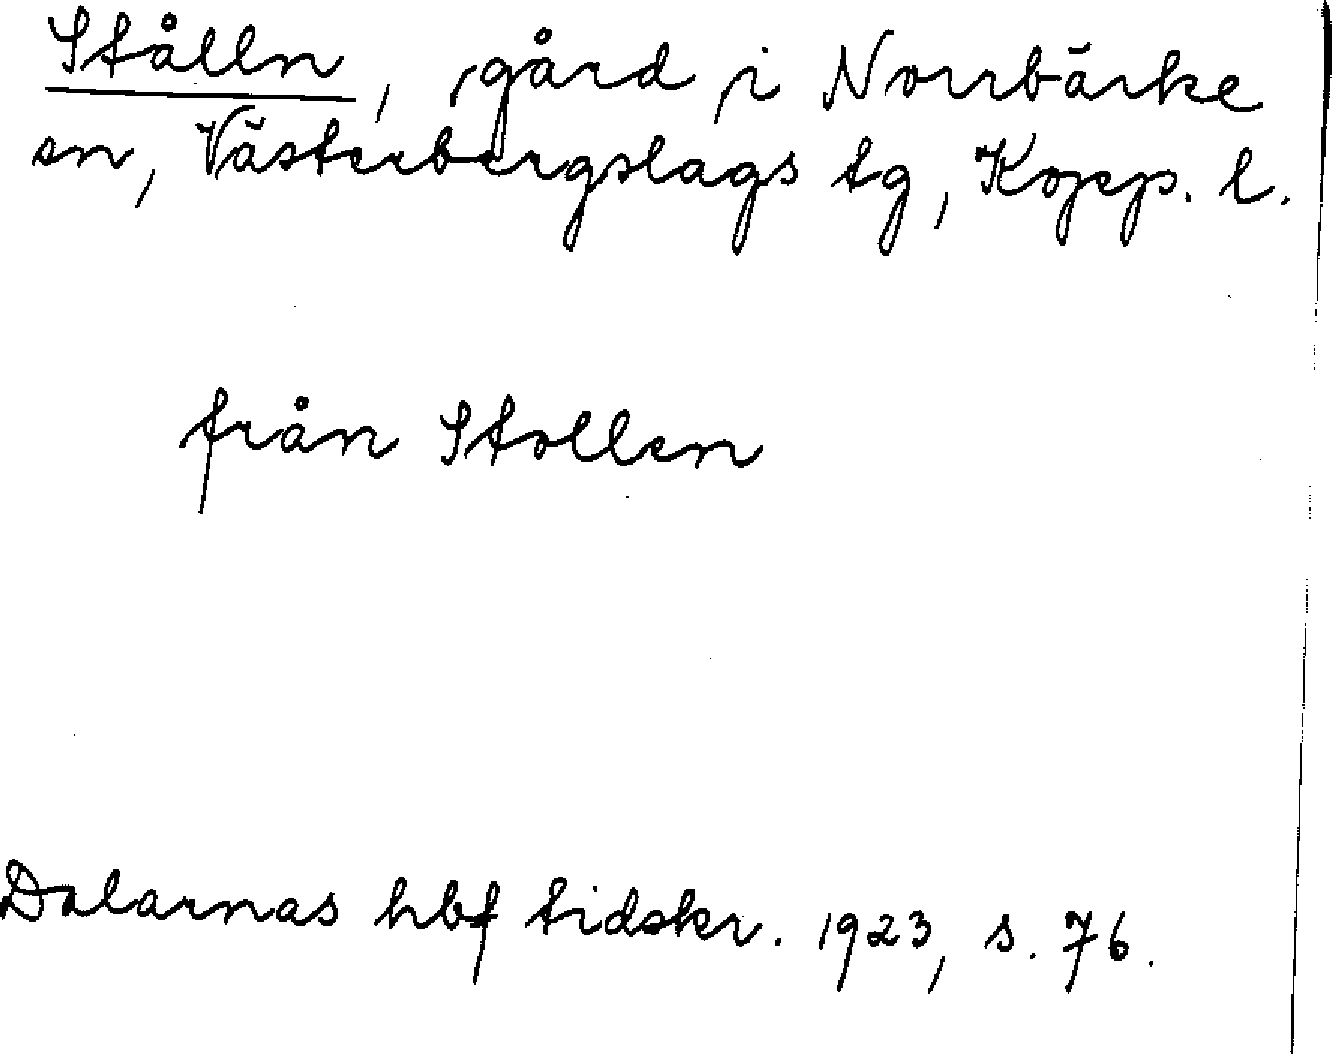 Stålln, gård i Norrbärke
sn, Västerbergslags tg, Kopp. l.
från Stollen
Dalarnas hbf tidskr. 1923, s. 76.